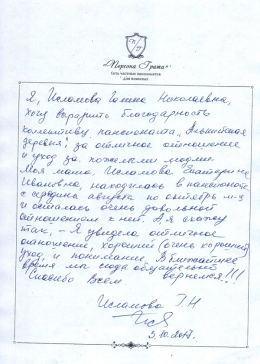 "Персона Грата"
Сеть частных пансионатов
для пожилых
Я, Исламова Галина Николаевна,
хочу выразить благодарность
коллективу пансионата "Альпийская
деревня", за отличное отношение
и уход за пожилыми людьми.
Моя мама, Исламова Екатерина
Ивановна, находилась в пансионате
с середины августа по октябрь м-ц
и осталась очень довольной
отношением к ней. А я скажу
так, - Я увидела отличное
отношение, хороший (очень хороший)
уход, и понимание. В ближайшее
время мы сюда обязательно
Спасибо Всем вернемся!!!
Исламова Г.Н
5.10.2017.